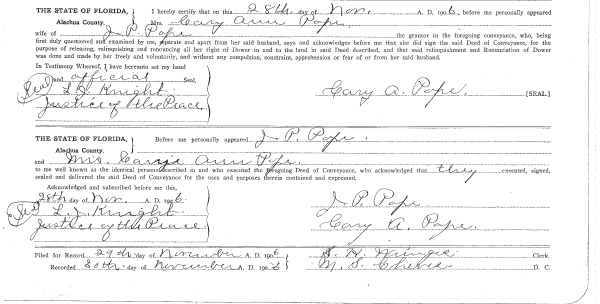 THE STATE OF FLORIDA, I hereby certify that on this 28th day of Nov. A. D. 1906, before me personally appeared
Alachua County. Mrs. Cary Ann Pope
wife of J. P. Pope the grantor in the foregoing conveyance, who, being
first duly questioned and examined by me, separate and apart from her said husband, says and acknowledges before me that she did sign the said Deed of Conveyance, for the
purpose of releasing, relinquishing and renouncing all her right of Dower in and to the land in said Deed described, and that said relinquishment and Renunciation of Dower
was done and made by her freely and voluntarily, and without any compulsion, constraint, apprehension or fear of or from her said husband.
In Testimony Whereof, I have hereunto set my hand
and official Seal,
(Seal) L. J. Knight. Cary A. Pope. [SEAL.]
Justice of the Peace.
THE STATE OF FLORIDA, Before me personally appeared J. P. Pope.
Alachua County.
and Mrs. Ann Pope.
to me well known as the identical persons described in and who executed the foregoing Deed of Conveyance, who acknowledged that they executed, signed,
sealed and delivered the said Deed of Conveyance for the uses and purposes therein contained and expressed.
Acknowledged and subscribed before me this,
28th day of Nov. A. D. 1906. J. P. Pope
(Seal) L. J. Knight. Cary A. Pope.
Justice of the Peace.
Filed for Record 29th day of November A. D. 1906 S. H. Clerk.
Recorded 30th day of November A. D. 1906 M. S. D. C.